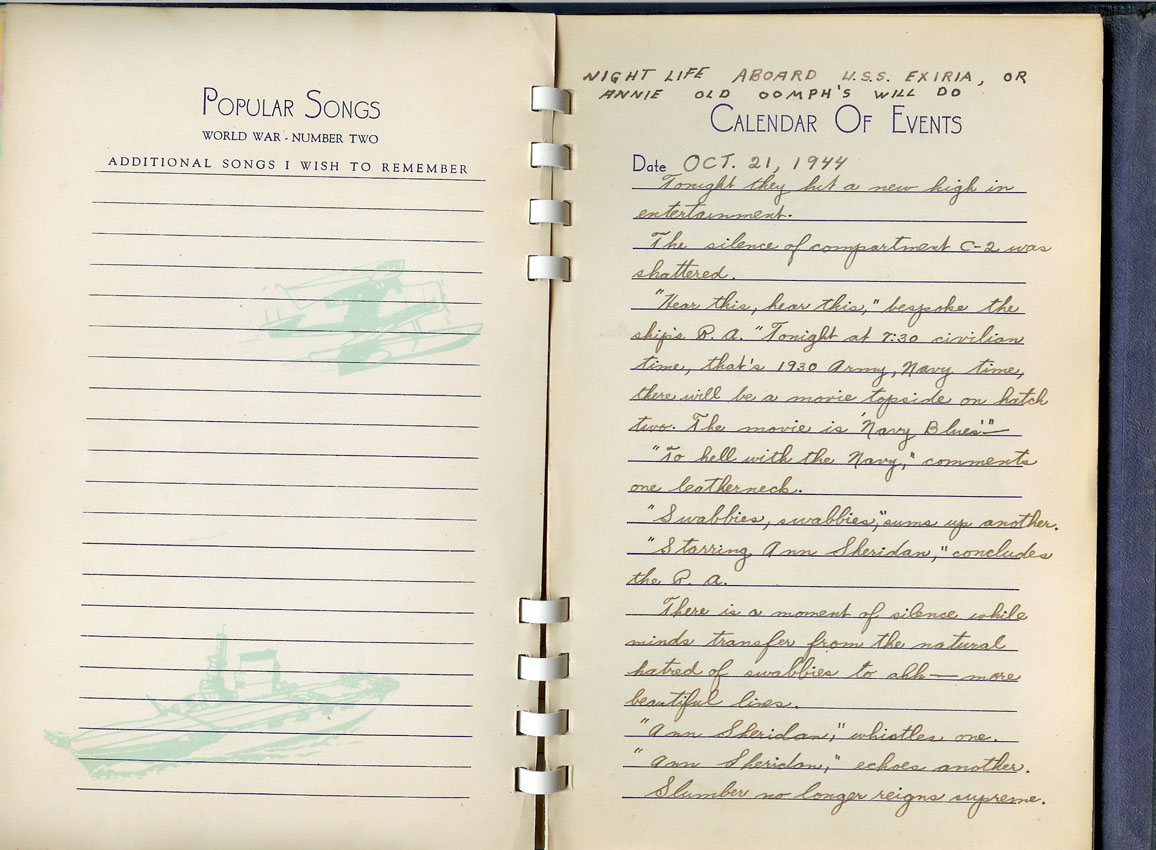 POPULAR SONGS
WORLD WAR - NUMBER TWO
ADDITIONAL SONGS I WISH TO REMEMBER
NIGHT LIFE ABOARD U.S.S. EXIRIA, OR
ANNIE OLD OOMPH'S WILL DO
CALENDAR OF EVENTS
Date OCT. 21, 1944
Tonight they hit a new high in
entertainment.
The silence of compartment C-2 was
shattered.
"Hear this, hear this," bespoke the
ship's P. A. "Tonight at 7:30 civilian
time, that's 1930 Army, Navy time,
there will be a movie topside on hatch
two. The movie is 'Navy Blues'"—
"To hell with the Navy," comments
one leatherneck.
"Swabbies, swabbies," sums up another.
"Starring Ann Sheridan," concludes
the P. A.
There is a moment of silence while
minds transfer from the natural
hatred of swabbies to ahh — more
beautiful lines.
"Ann Sheridan," whistles one.
"Ann Sheridan," echoes another.
Slumber no longer reigns supreme.